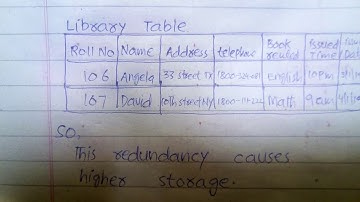 Library Table
Roll No Name Address telephone Book Issued
Time
106 Angela 33 street TX English 10pm
107 David 10th street NY Math 9am
So,
This redundancy causes
higher storage.